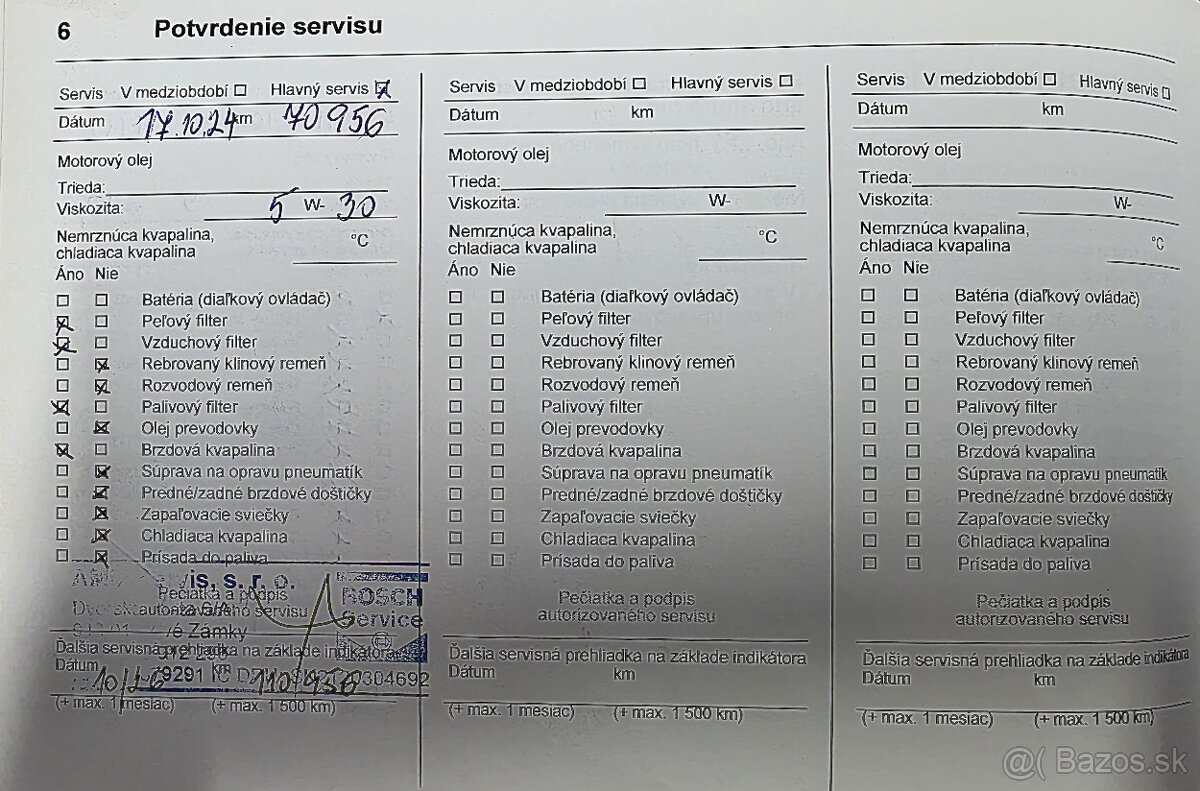 6 Potvrdenie servisu
Servis V medziobdobí Hlavný servis
Dátum 17.10.24 km 70 956
Motorový olej
Trieda:
Viskozita: 5 W- 30
Nemrznúca kvapalina, °C
chladiaca kvapalina
Áno Nie
Batéria (diaľkový ovládač)
Peľový filter
Vzduchový filter
Rebrovaný klinový remeň
Rozvodový remeň
Palivový filter
Olej prevodovky
Brzdová kvapalina
Súprava na opravu pneumatík
Predné/zadné brzdové doštičky
Zapaľovacie sviečky
Chladiaca kvapalina
Prísada do paliva
vis, s. r. o.
Pečiatka a podpis
autorizovaného servisu
BOSCH
Service
é Zámky
Ďalšia servisná prehliadka na základe indikátora
Dátum km
(+ max. 1 mesiac) (+ max. 1 500 km)
Servis V medziobdobí Hlavný servis
Dátum km
Motorový olej
Trieda:
Viskozita: W-
Nemrznúca kvapalina, °C
chladiaca kvapalina
Áno Nie
Batéria (diaľkový ovládač)
Peľový filter
Vzduchový filter
Rebrovaný klinový remeň
Rozvodový remeň
Palivový filter
Olej prevodovky
Brzdová kvapalina
Súprava na opravu pneumatík
Predné/zadné brzdové doštičky
Zapaľovacie sviečky
Chladiaca kvapalina
Prísada do paliva
Pečiatka a podpis
autorizovaného servisu
Ďalšia servisná prehliadka na základe indikátora
Dátum km
(+ max. 1 mesiac) (+ max. 1 500 km)
Servis V medziobdobí Hlavný servis
Dátum km
Motorový olej
Trieda:
Viskozita: W-
Nemrznúca kvapalina, °C
chladiaca kvapalina
Áno Nie
Batéria (diaľkový ovládač)
Peľový filter
Vzduchový filter
Rebrovaný klinový remeň
Rozvodový remeň
Palivový filter
Olej prevodovky
Brzdová kvapalina
Súprava na opravu pneumatík
Predné/zadné brzdové doštičky
Zapaľovacie sviečky
Chladiaca kvapalina
Prísada do paliva
Pečiatka a podpis
autorizovaného servisu
Ďalšia servisná prehliadka na základe indikátora
Dátum km
(+ max. 1 mesiac) (+ max. 1 500 km)
Bazos.sk